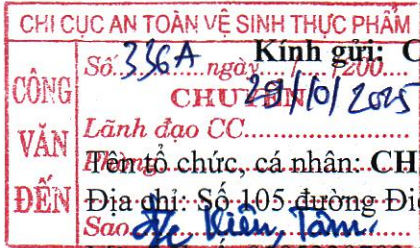 CHI CỤC AN TOÀN VỆ SINH THỰC PHẨM
CÔNG VĂN ĐẾN
Số: 336A ngày / /200 Kính gửi: C
CHUYỂN 29/10/2025
Lãnh đạo CC
Tên tổ chức, cá nhân: CH
Địa chỉ: Số 105 đường Điệ
Sao đ/c Kiên, Tâm.